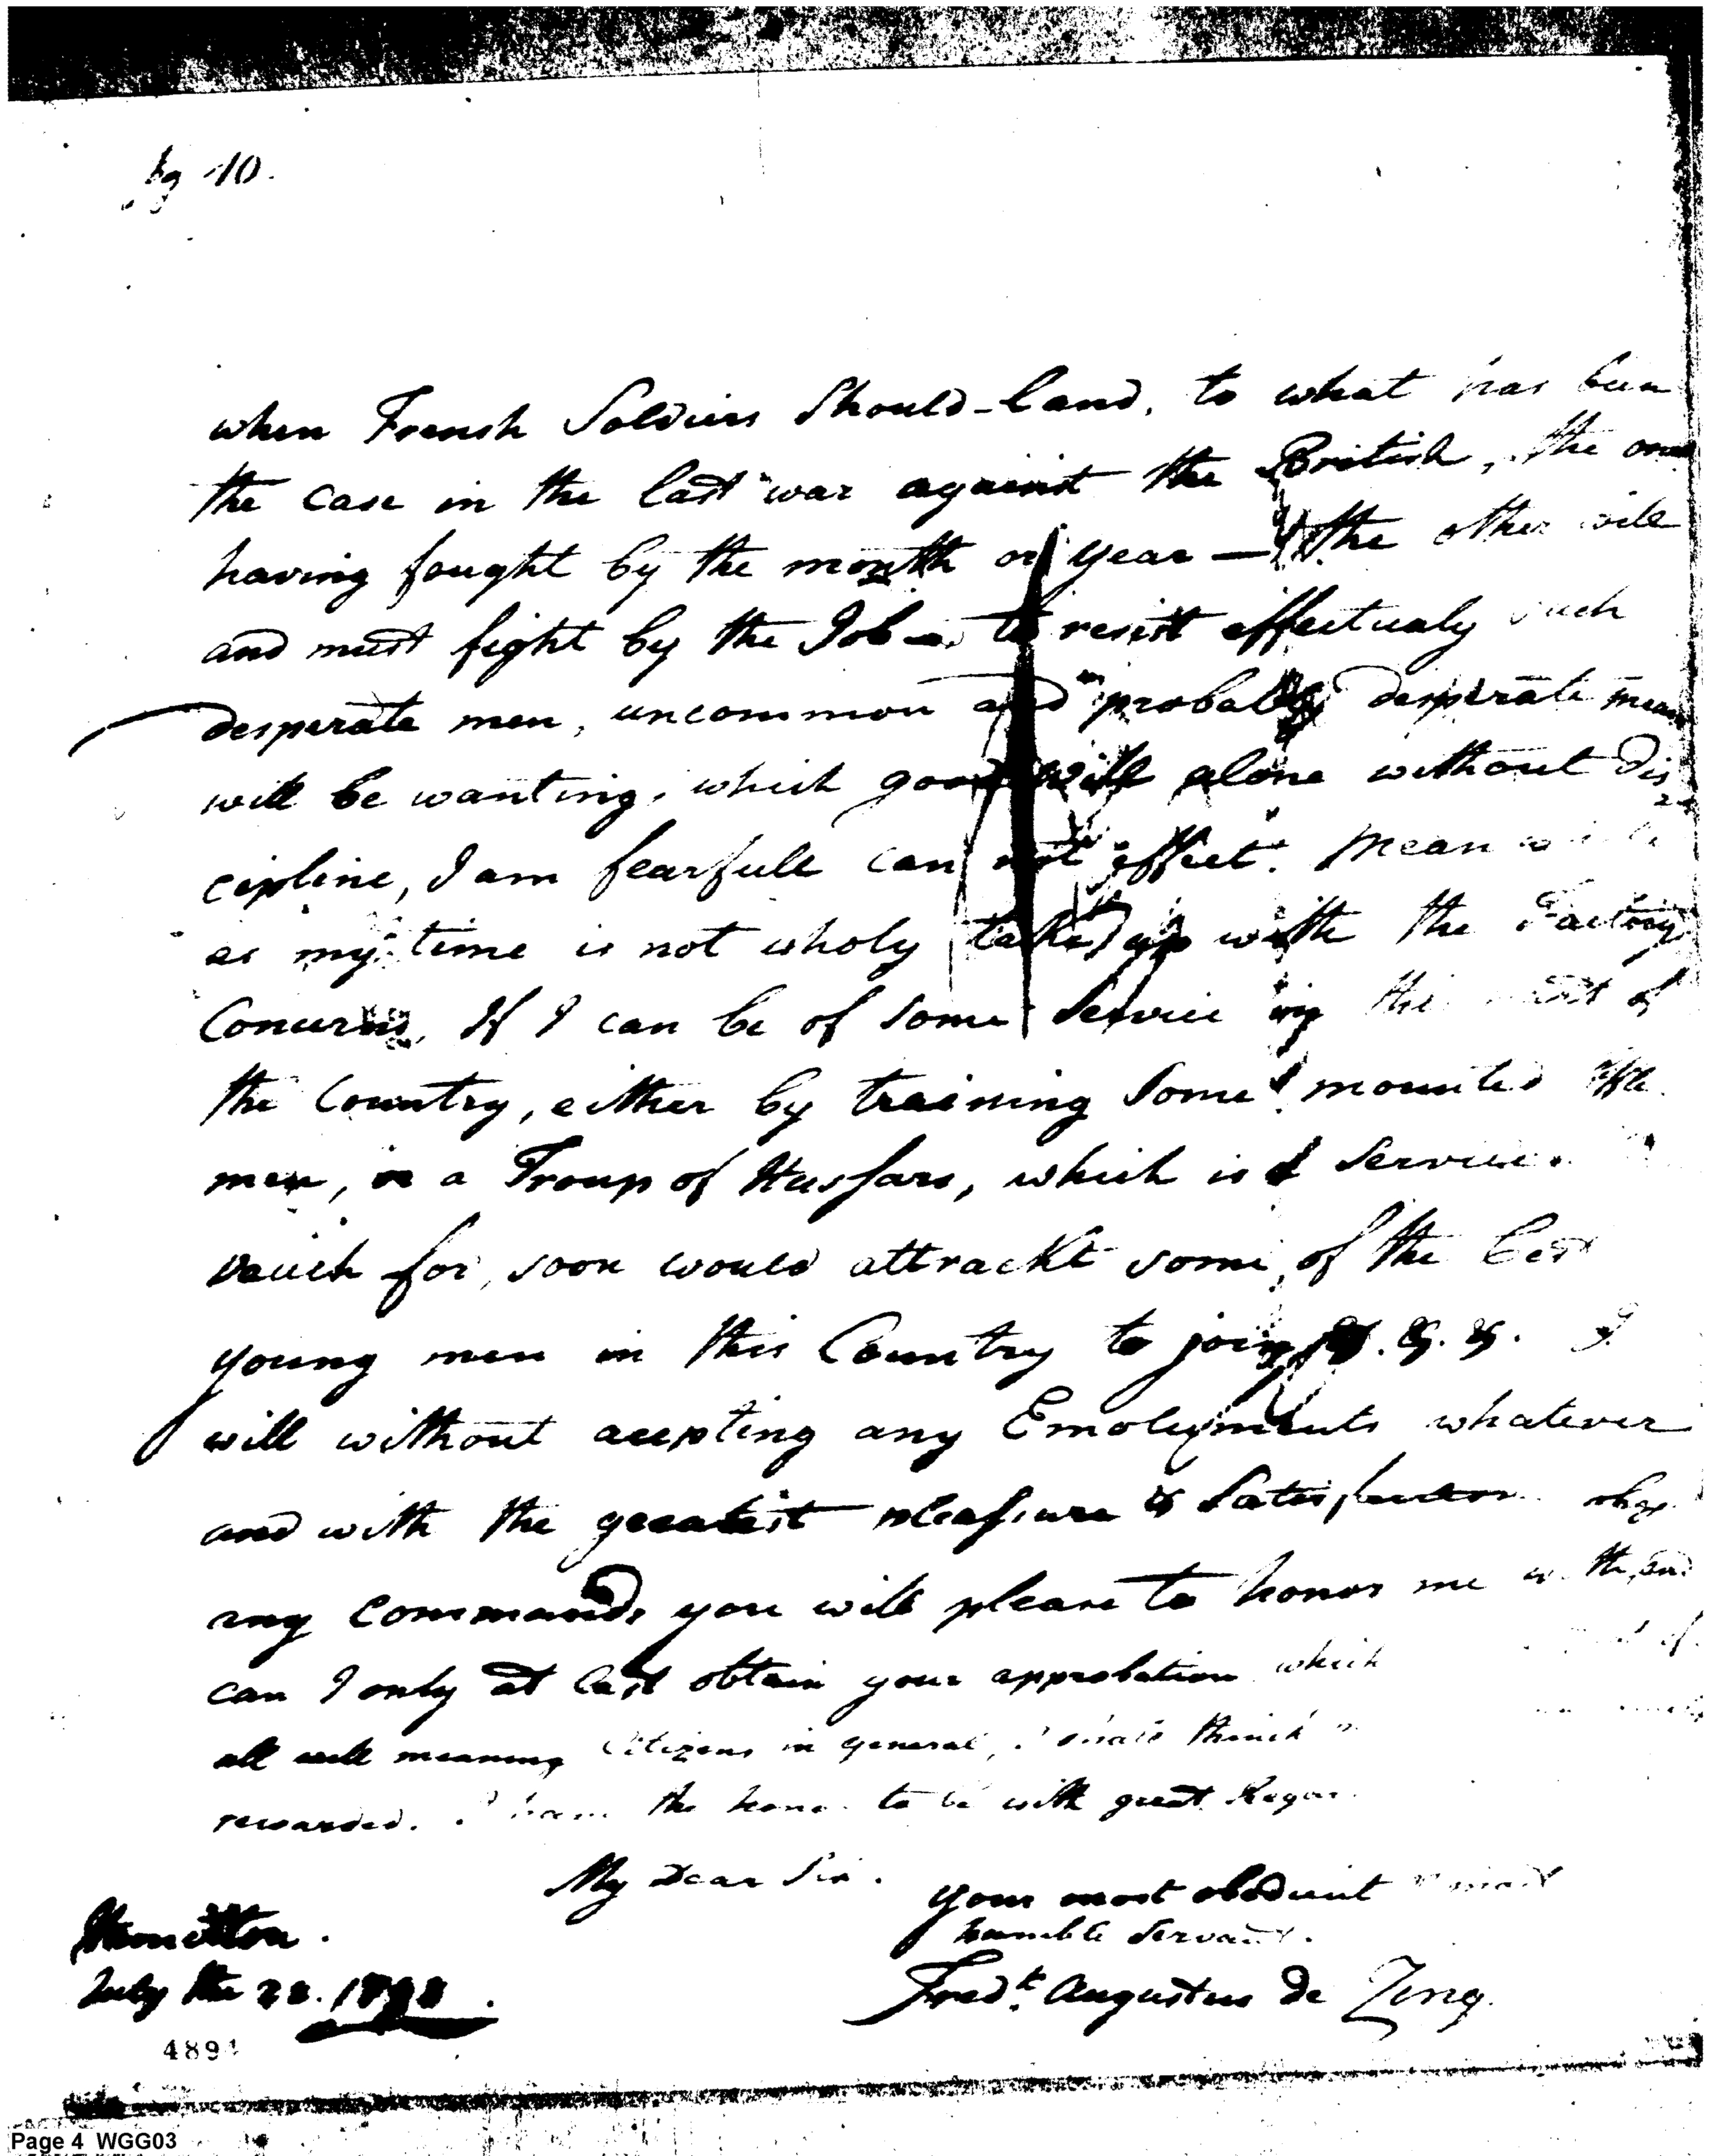 pg 10.
when French Soldiers Should-land, to what has been
the case in the last war against the British, the one
having fought by the month or year — the other will
and must fight by the Job — to resist effectualy such
desperate men, uncommon and probably desperate means
will be wanting, which good will alone without dis
cipline, I am fearfull can not effect. Mean while
as my time is not wholy taked up with the Factory
Concerns, If I can be of some Service in the of
the Country, either by training Some mounted rifle
men, or a Troup of Hussars, which is Service
vauch for, soon would attrackt some of the best
young men in this Country to join &. &. &. I
will without accepting any Emolyments whatever
and with the greatest pleasure & Satisfaction obey
ing commands you will please to honor me with, and
can I only at last obtain your approbation which
all well meaning Citizens in general, I shall think
rewarded. I have the honor to be with great Regard
My Dear Sir.
your most obedient
humble Servant.
Fredk. Augustus De Zeng.
Hamilton.
July the 22. 1798.
489
Page 4 WGG03